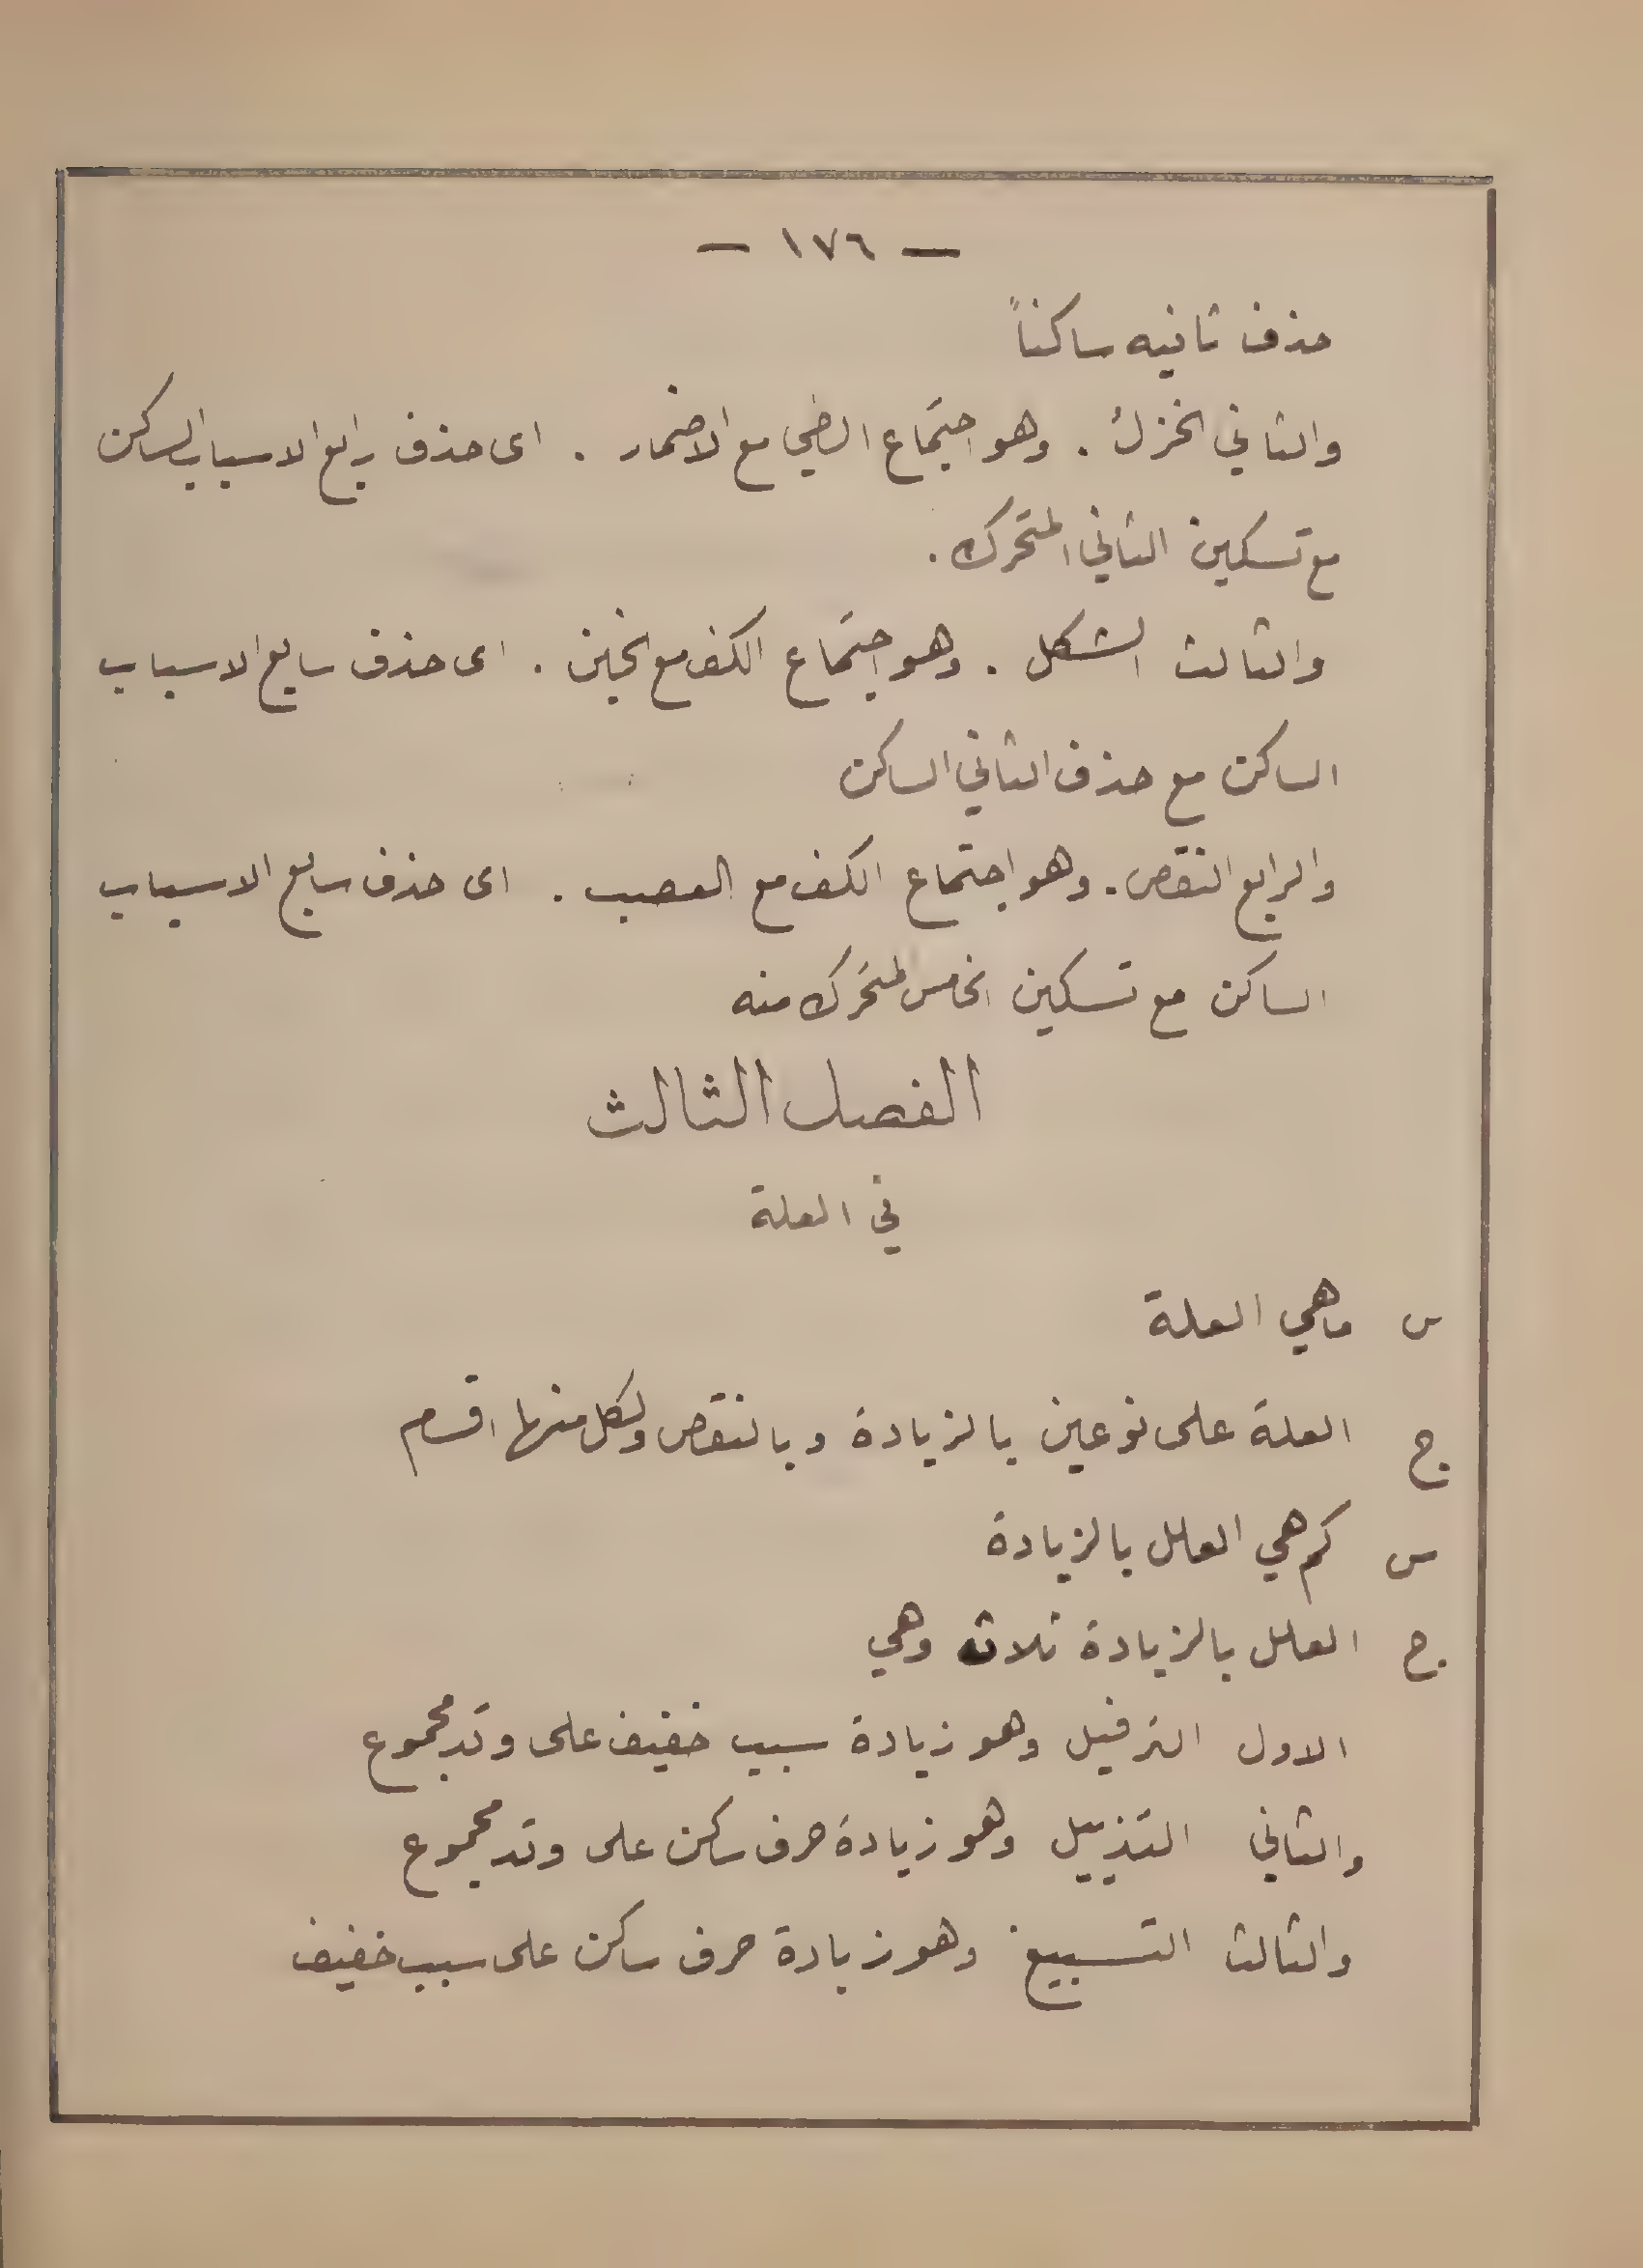 — ١٧٦ —
حذف ثانيه ساكناً
والثاني الخزل . وهو اجتماع الطي مع الاضمار . اى حذف رابع الاسباب الساكن
مع تسكين الثاني المتحرك .
والثالث الشكل . وهو اجتماع الكف مع الخبن . اى حذف سابع الاسباب
الساكن مع حذف الثاني الساكن
والرابع النقص . وهو اجتماع الكف مع العصب . اى حذف سابع الاسباب
الساكن مع تسكين الخامس المتحرك منه
الفصل الثالث
في العلة
س ما هي العلة
ج العلة على نوعين بالزيادة وبالنقص ولكل منها اقسام
س كم هي العلل بالزيادة
ج العلل بالزيادة ثلاث وهي
الاول الترفيل وهو زيادة سبب خفيف على وتد مجموع
والثاني التذييل وهو زيادة حرف ساكن على وتد مجموع
والثالث التسبيغ وهو زيادة حرف ساكن على سبب خفيف